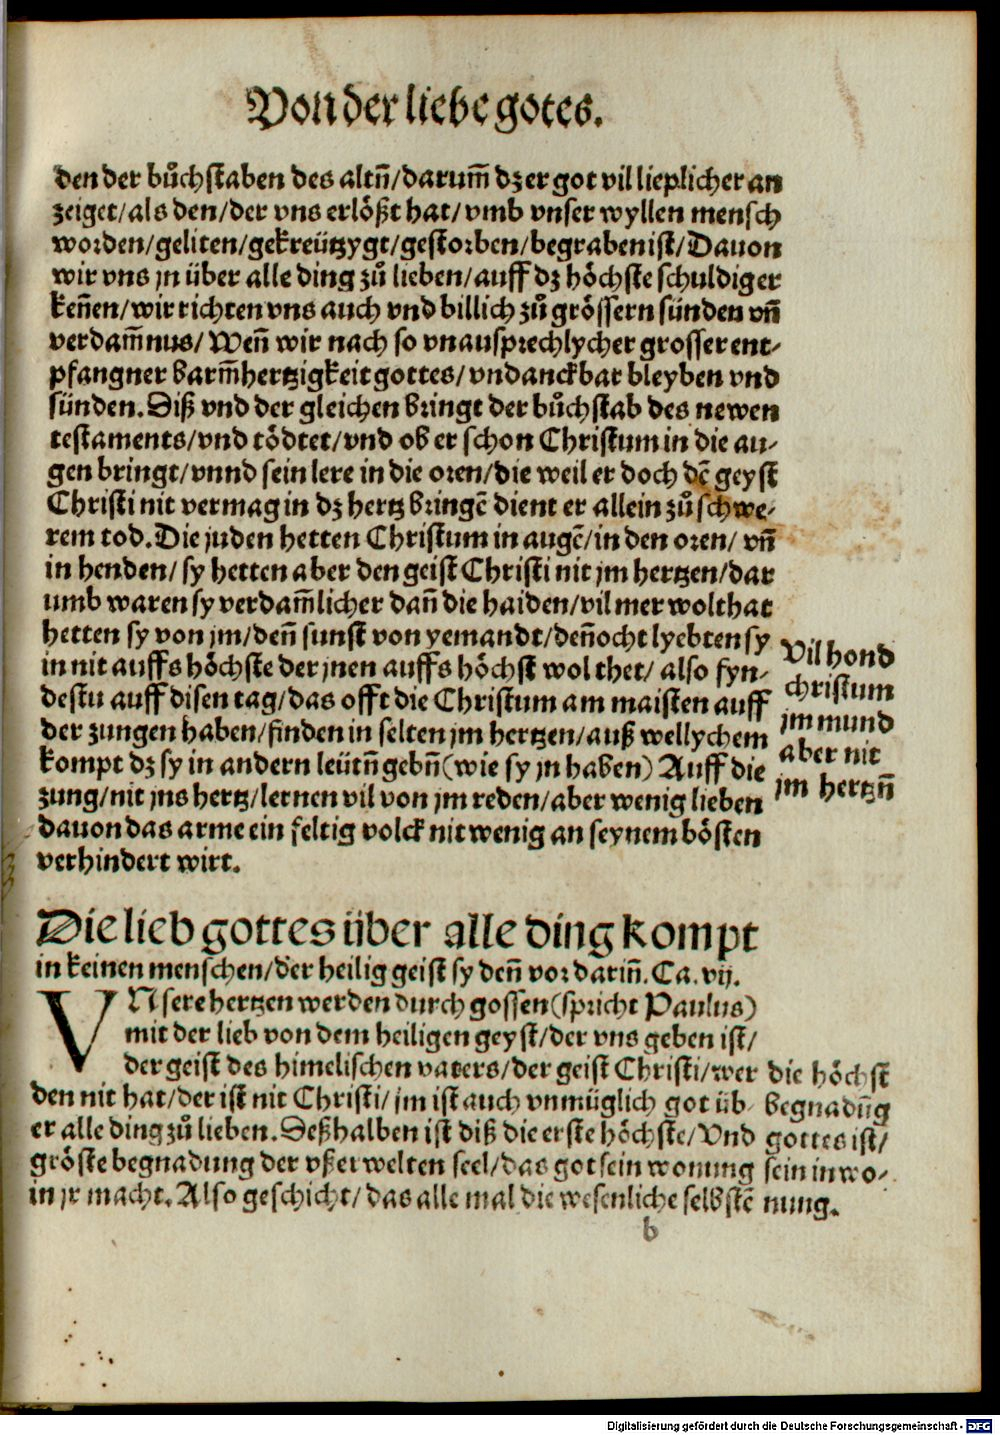 Von der liebe gotes.
den der bůchstaben des altn̄/darum̄ dz er got vil lieplicher an
zeiget/als den/der vns erlößt hat/vmb vnser wyllen mensch
worden/geliten/gekreützygt/gestorben/begraben ist/Dauon
wir vns jn über alle ding zů lieben/auff dz höchste schuldig er
ken̄en/wir richten vns auch vnd billich zů grössern sünden vn̄
verdam̄nus/Wen̄ wir nach so vnausprechlycher grosser ent-
pfangner barm̄hertzigkeit gottes/vndanckbar bleyben vnd
sünden. Diß vnd der gleichen bringt der bůchstab des newen
testaments/vnd tödtet/vnd ob er schon Christum in die au-
gen bringt/vnnd sein lere in die oren/die weil er doch dē geyst
Christi nit vermag in dz hertz bringē dient er allein zů schwe-
rem tod. Die juden hetten Christum in augē/in den oren/vn̄
in henden/sy hetten aber den geist Christi nit jm hertzen/dar
umb waren sy verdam̄licher dan̄ die haiden/vil mer wolthat
hetten sy von jm/den̄ sunst von yemandt/den̄ocht lyebten sy
in nit auffs höchste der jnen auffs höchst wol thet/also fyn-
destu auff disen tag/das offt die Christum am maisten auff
der zungen haben/finden in selten jm hertzen/auß wellychem
kompt dz sy in andern leütn̄ gebn̄ (wie sy jn haben) Auff die
zung/nit jns hertz/lernen vil von jm reden/aber wenig lieben
dauon das arme ein feltig volck nit wenig an seynem bösten
verhindert wirt.
Vil hond
christum
jm mund
aber nit
jm hertzn̄
Die lieb gottes über alle ding kompt
in keinen menschen/der heilig geist sy den̄ vor darin̄. Ca. vij.
VNsere hertzen werden durch gossen (spricht Paulus)
mit der lieb von dem heiligen geyst/der vns geben ist/
der geist des himelischen vaters/der geist Christi/wer
den nit hat/der ist nit Christi/jm ist auch vnmüglich got üb-
er alle ding zů lieben. Deßhalben ist diß die erste höchste/Vnd
gröste begnadung der vßerwelten seel/das got sein wonung
in jr macht. Also geschicht/das alle mal die wesenliche selbstē
die höchst
begnadūg
gottes ist/
sein inwo-
nung.
b
Digitalisierung gefördert durch die Deutsche Forschungsgemeinschaft - DFG